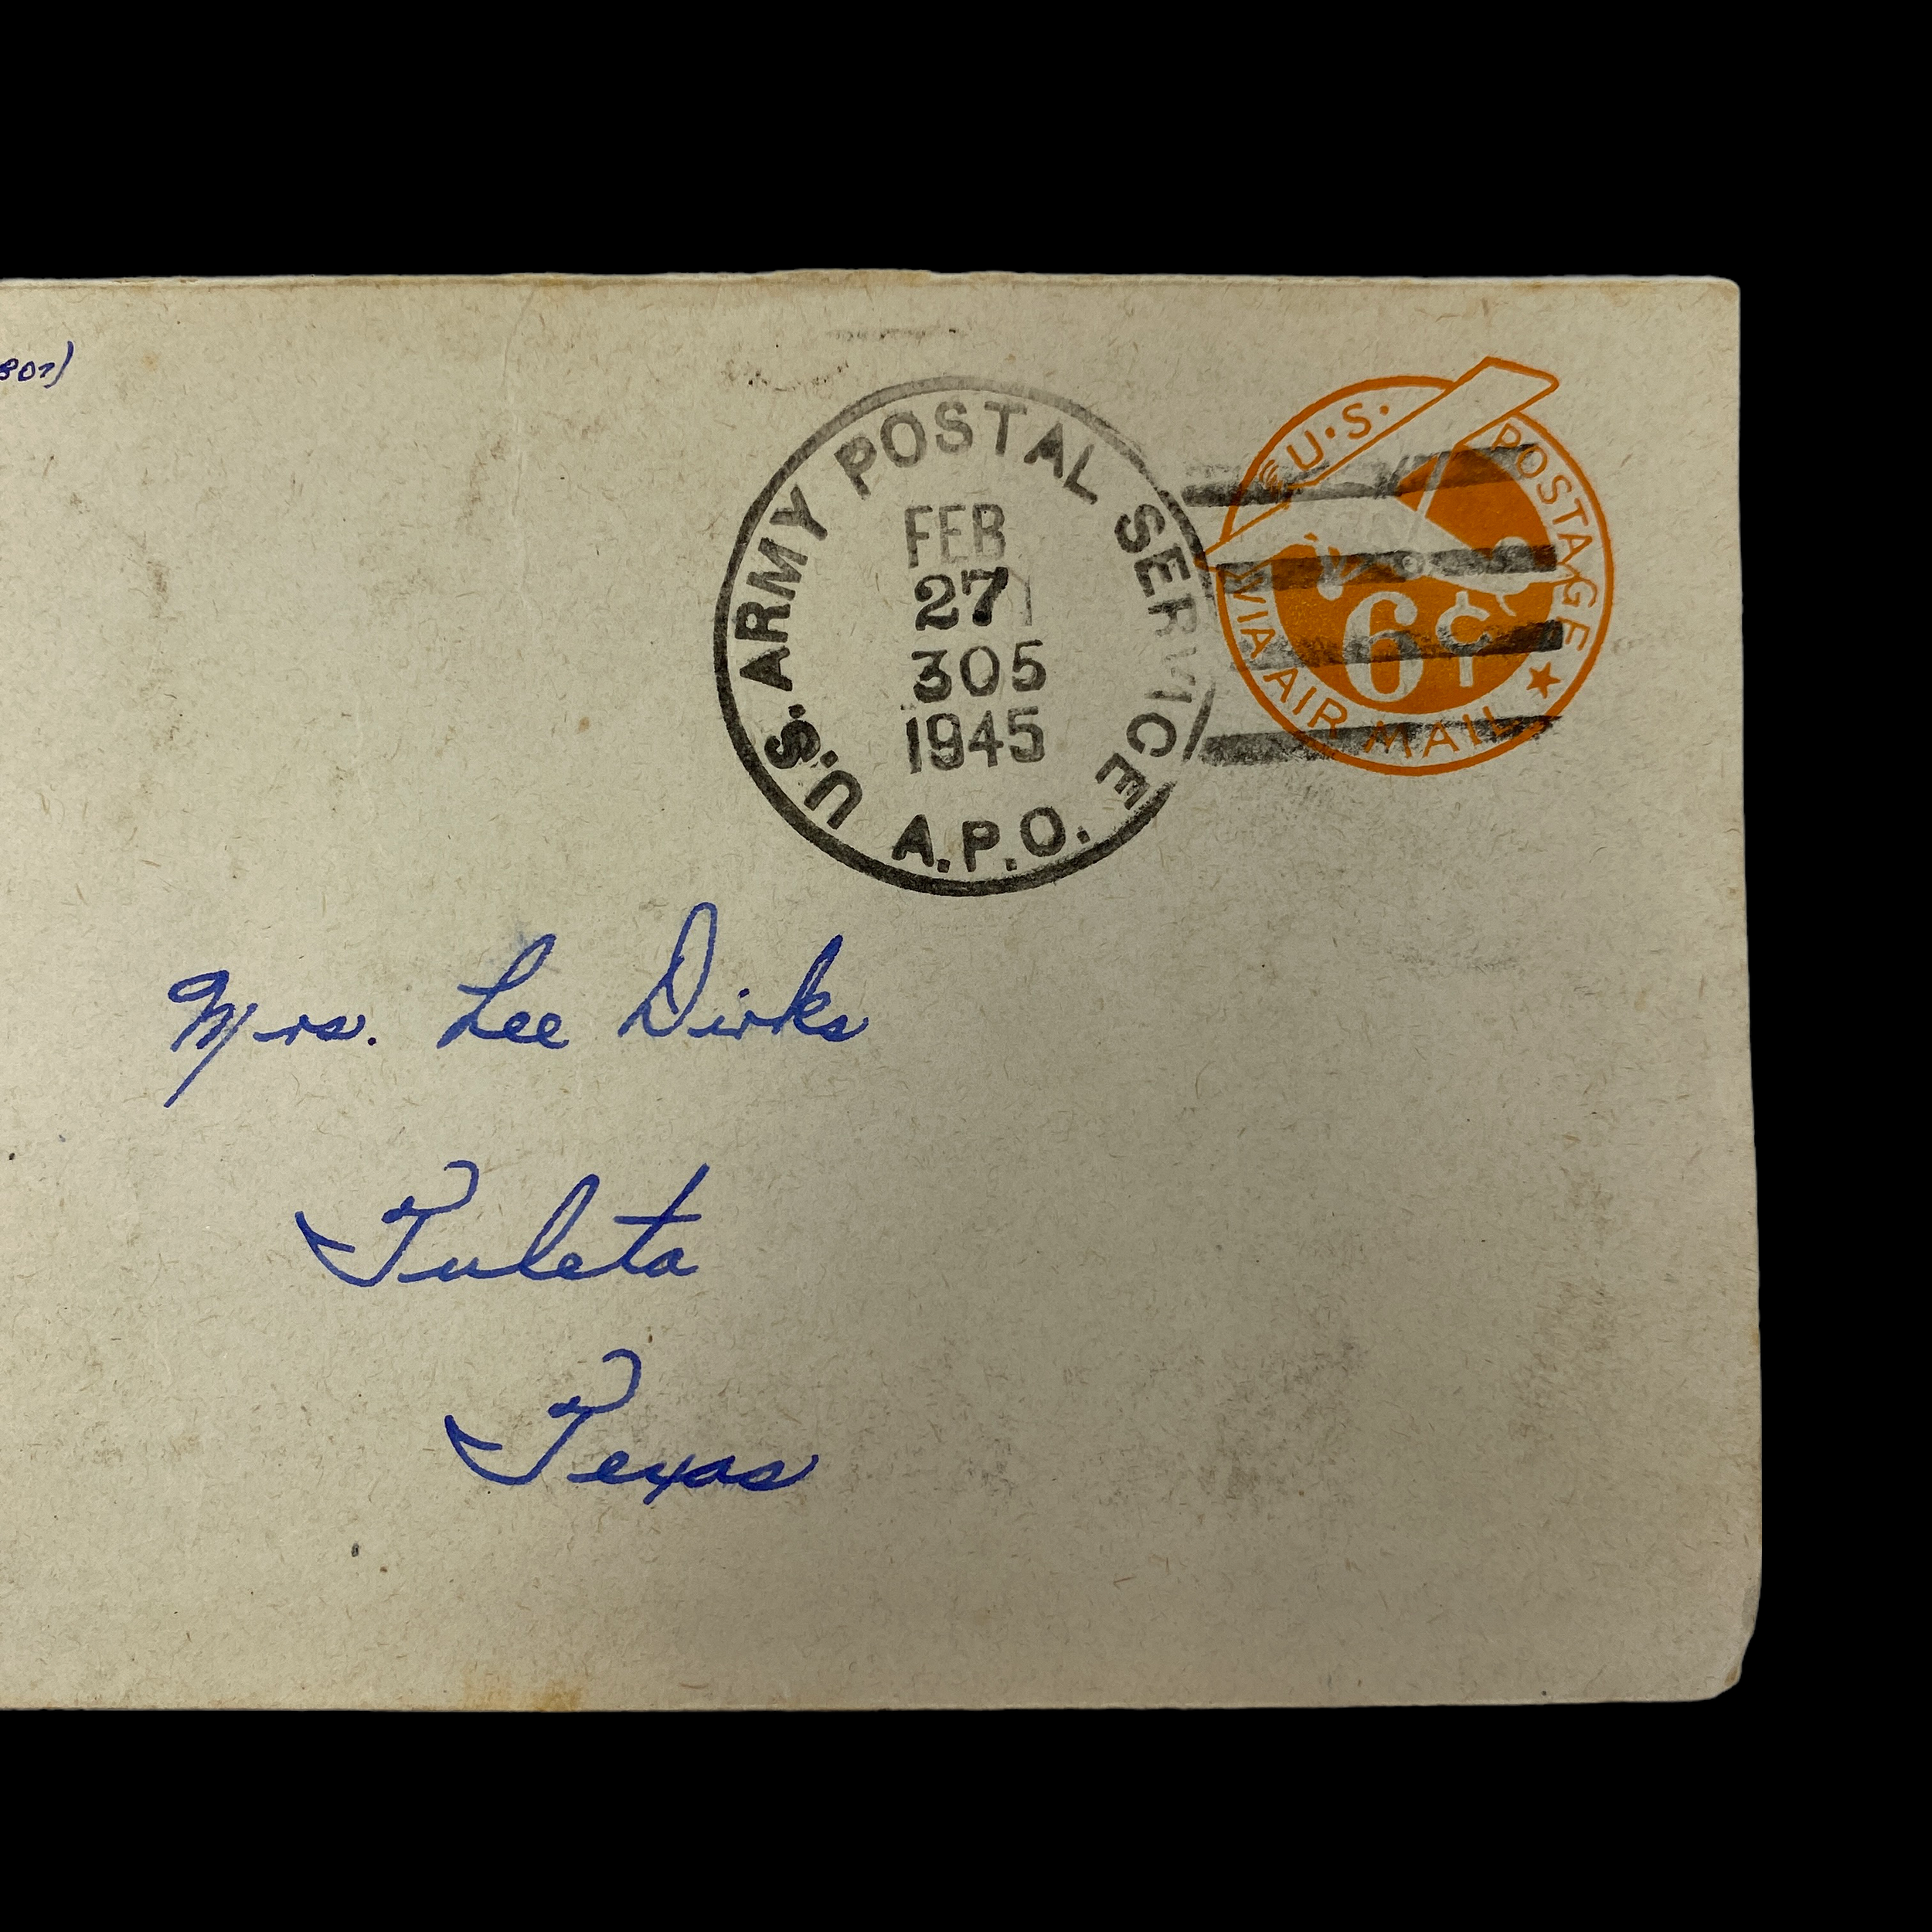 807)
U.S. ARMY POSTAL SERVICE
FEB
27
305
1945
A.P.O.
U.S. POSTAGE
6¢
VIA AIR MAIL
Mrs. Lee Dirks
Tuleta
Texas